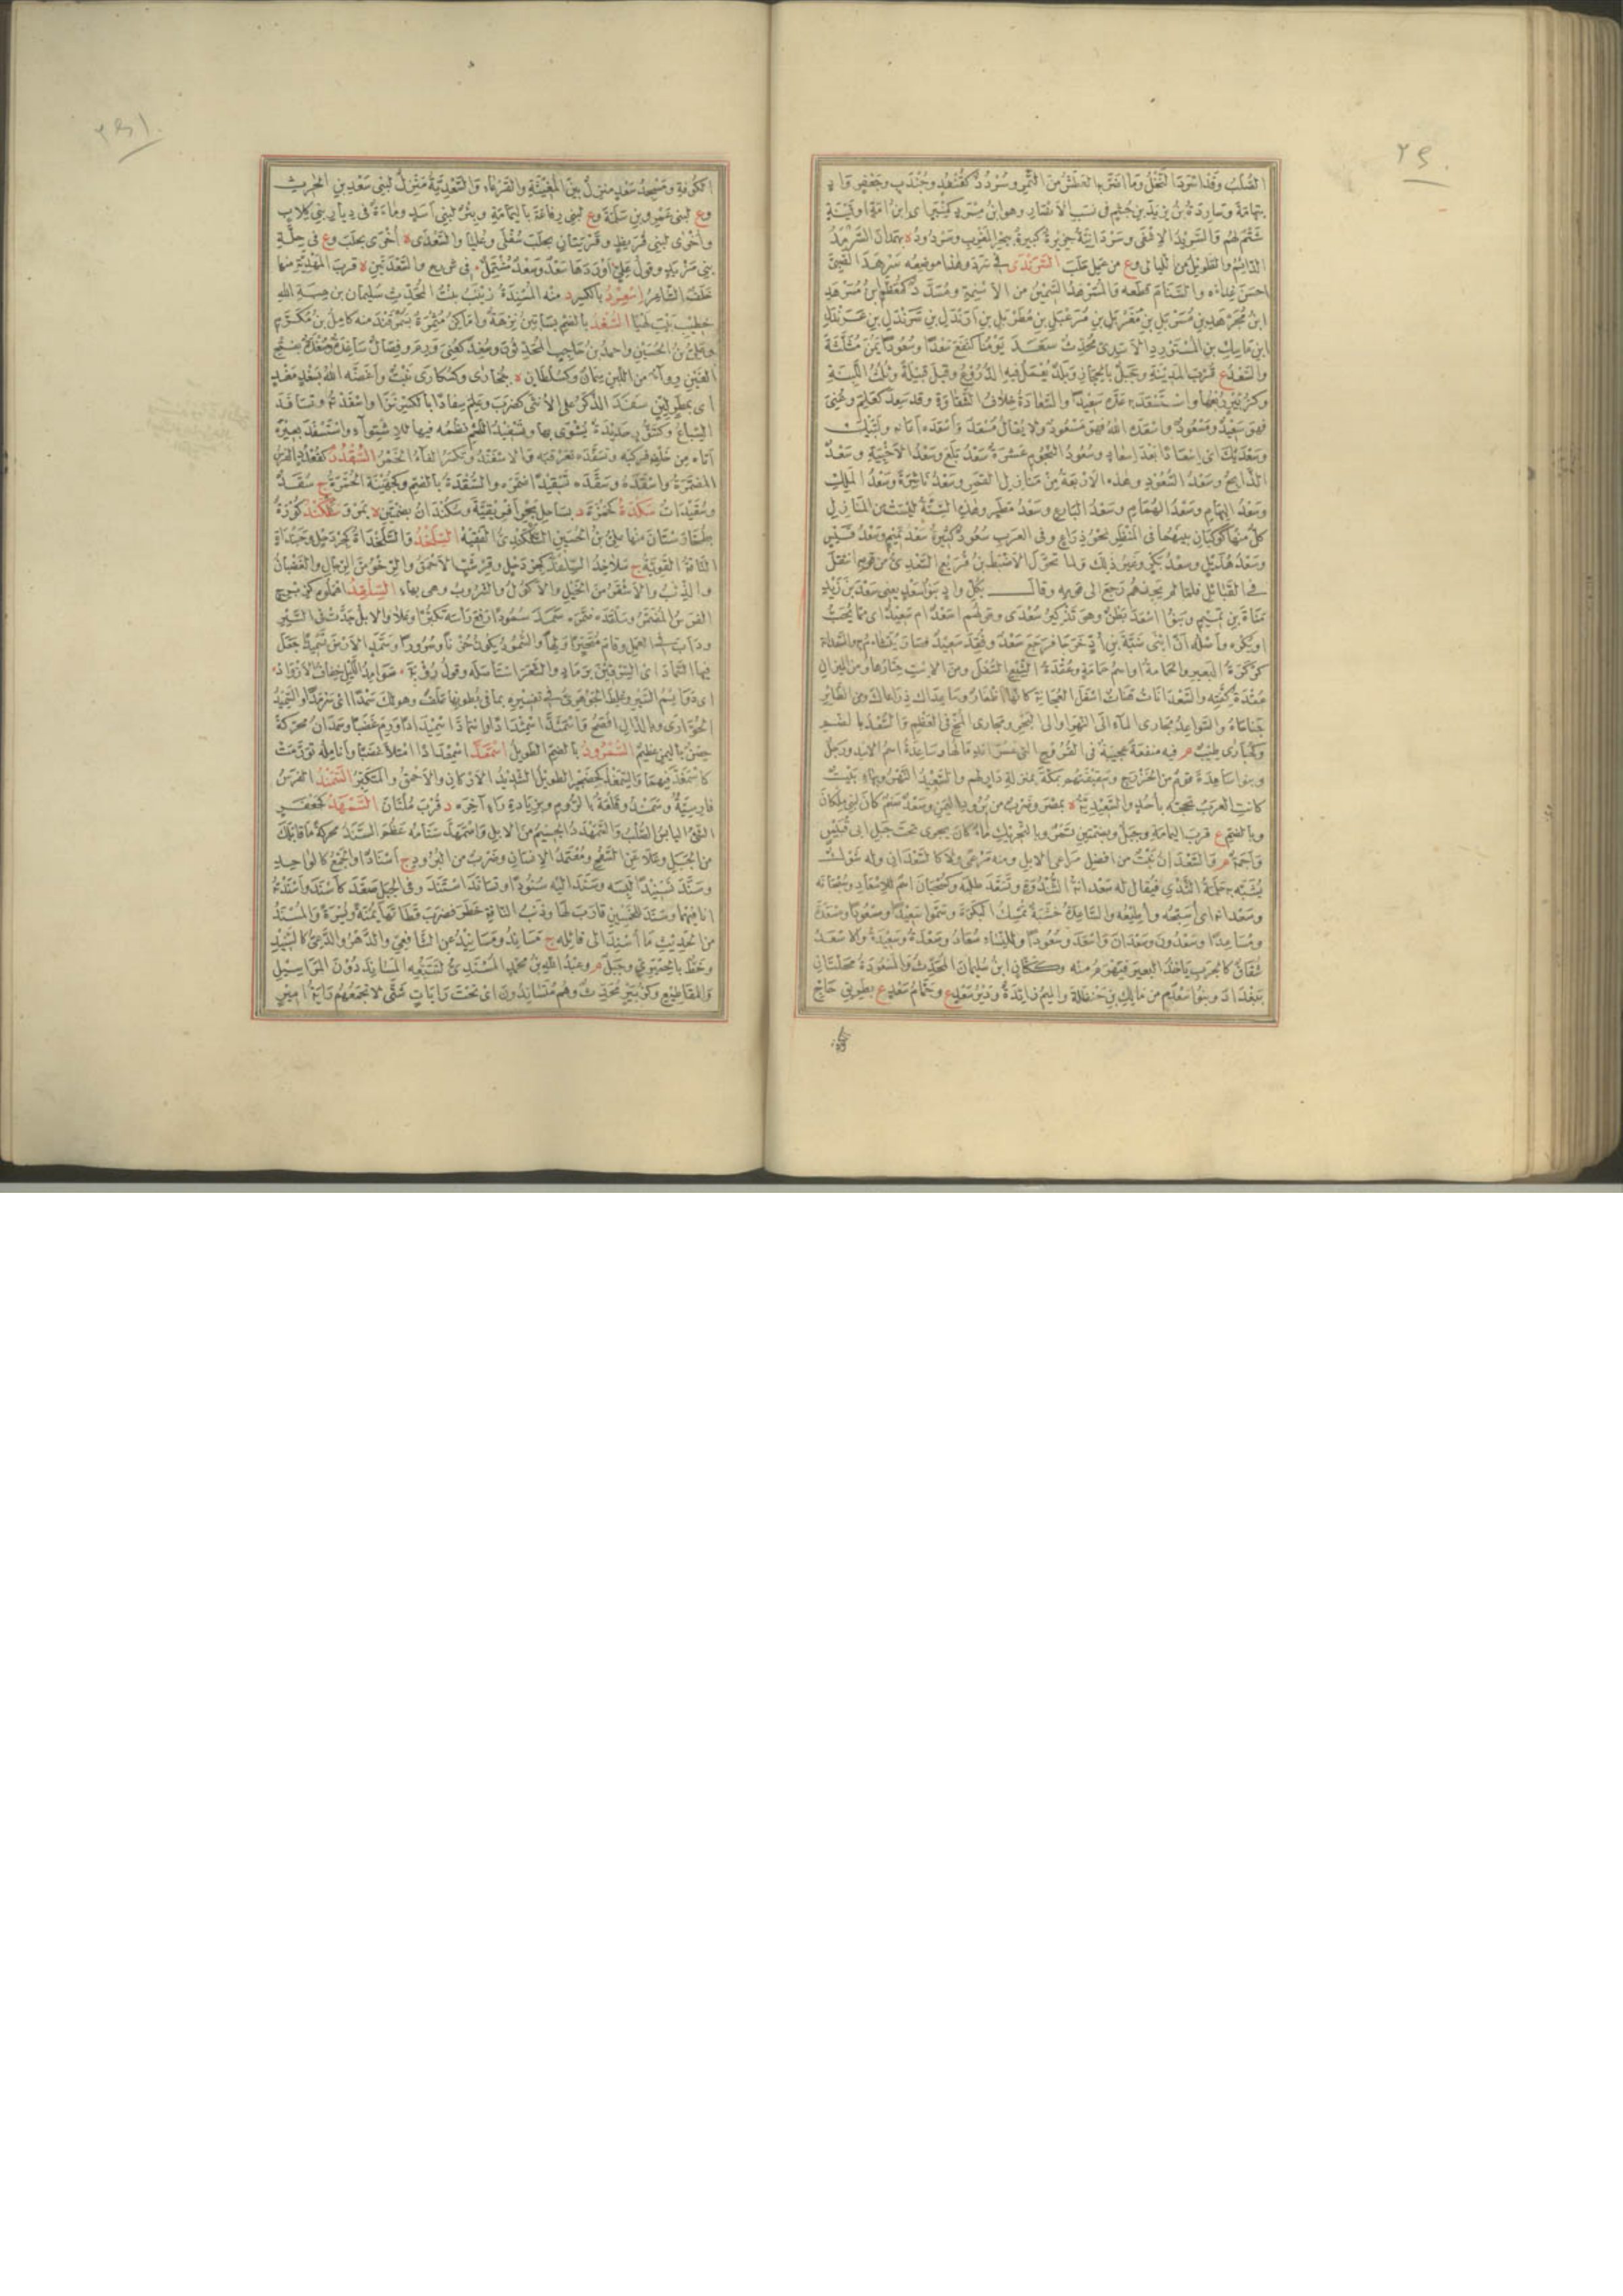 الصُّلْبُ وقد اسْرَدَ النَّخْلُ وما اضَرَّ بها العَطَشُ من الثَّمَرِ وسُرْدُدٌ كقُنْفُدٍ وجُنْدَبٍ وجَعْفَرٍ وادٍ
بتِهامَةَ وسارِدَةُ بنُ يَزيدَ بنِ جُشَمَ فى نَسَبِ الأَنْصارِ وهو ابنُ مِسْرَدٍ كمِنْبَرٍ اى ابنُ امَةٍ او قَيْنَةٍ
شَتْمٌ لهم
الدَّائِمُ والطَّويلُ من اللَّيالى وع من عَمَلِ حَلَبَ السَّرَنْدَى فى سَرَدَ وهذا موضِعُه سَرْهَدَ الصَّبِىَّ
احسَنَ غِذاءَه والسَّنامَ قَطَعَه والمُسَرْهَدُ السَّمينُ من الأَسْنِمَةِ ومُسَدَّدٌ كمُعَظَّمٍ ابنُ مُسَرْهَدِ
ابنِ مُجَرْهَدِ بنِ مُسَرْبَلِ بنِ مُغَرْبَلِ بنِ مُرَعْبَلِ بنِ مُطَرْبَلِ بنِ اَرَنْدَلِ بنِ سَرَنْدَلِ بنِ عَرَنْدَلِ
ابنِ ماسِكِ بنِ المُسْتَوْرِدِ الأَسَدِىُّ مُحَدِّثٌ سَعَدَ يَوْمُنا كنَفَعَ سَعْدًا وسُعُودًا يَمُنَ مُثَلَّثَةً
والسَّعْدُ ع قُرْبَ المَدِينَةِ وجَبَلٌ بالحِجازِ وبَلَدٌ يُعْمَلُ فيهِ الدُّرُوعُ وقيلَ قَبيلَةٌ وثُلُثُ اللَّبِنَةِ
وكزُبَيْرٍ رُبْعُها واسْتَسْعَدَ به عَدَّه سَعِيدًا والسَّعادَةُ خِلافُ الشَّقاوَةِ وقد سَعِدَ كعَلِمَ وعُنِىَ
فهو سَعِيدٌ ومَسْعُودٌ واسْعَدَه اللهُ فهو مَسْعُودٌ ولا يُقالُ مُسْعَدٌ وأَسْعَدَه أعانَه ولَبَّيْكَ
وسَعْدَيْكَ اى اِسْعادًا بعدَ اِسْعادٍ وسُعُودُ النُّجُومِ عَشَرَةٌ سَعْدُ بُلَعَ وسَعْدُ الأَخْبِيَةِ وسَعْدٌ
الذَّابِحُ وسَعْدُ السُّعُودِ وهذه الأَرْبَعَةُ مِنْ مَنازِلِ القَمَرِ وسَعْدُ ناشِرَةَ وسَعْدُ المَلِكِ
وسَعْدُ البِهامِ وسَعْدُ الهُمامِ وسَعْدُ البارِعِ وسَعْدُ مَطَرٍ وهذه السِّتَّةُ ليست من المَنازِلِ
كلٌّ منها كَوْكَبانِ بينهما فى المَنْظَرِ نحوُ ذِراعٍ وفى العَرَبِ سُعُودٌ كثيرَةٌ سَعْدُ تَمِيمٍ وسَعْدُ قَيْسٍ
وسَعْدُ هُذَيْلٍ وسَعْدُ بَكْرٍ وغيرُ ذلك ولمّا تحوَّلَ الأَضْبَطُ بنُ قُرَيْعٍ السَّعْدِىُّ من قومِه انتقَلَ
فى القَبائِلِ فلمّا لم يَحْمَدْهُم رَجَعَ الى قومِه وقال بكُلِّ وادٍ بَنُو سَعْدٍ يعنى سَعْدَ بنَ زَيْدِ
مَناةَ بنِ تَمِيمٍ وبَنُو اسْعَدَ بَطْنٌ وهى تَذْكِيرُ سُعْدَى وقولُهُم اسَعْدٌ ام سُعَيْدٌ اى ممّا يُحَبُّ
او يُكْرَه وأَصْلُه أنّ ابْنَىْ ضَبَّةَ بنِ أُدٍّ خرَجا فرجَعَ سَعْدٌ وفُقِدَ سُعَيْدٌ فصارَ يُتَشاءَمُ به والسَّعْدانَةُ
كِرْكِرَةُ البَعِيرِ والحَمامَةُ او اسمُ حَمامَةٍ وعُقْدَةُ الشِّسْعِ السُّفْلَى ومن الاِسْتِ حِتارُها ومن المِيزانِ
عُقْدَةُ كِفَّتِه والسَّعْداناتُ هَناتٌ اسفَلَ العُجايَةِ كأنّها اظْفارٌ وساعِداكَ ذِراعاكَ ومن الطّائِرِ
جَناحاه والسَّواعِدُ مَجارى الماءِ الى النَّهْرِ او الى البَحْرِ ومَجارى المُخِّ فى العَظْمِ والسُّعْدُ بالضَّمِّ
وكحُبارَى طِيبٌ م فيه مَنْفَعَةٌ عجيبةٌ فى القُرُوحِ التى عَسُرَ اندِمالُها وساعِدَةُ اسمُ الأَسَدِ ورَجُلٌ
وبنو ساعِدَةَ قومٌ من الخَزْرَجِ وسَقِيفَتُهُم بمَكَّةَ بمنزِلَةِ دارٍ لهم والسَّعِيدُ النَّهْرُ وبهاءٍ بَيْتٌ
كانت العَرَبُ تَحُجُّه بأُحُدٍ والسَّعِيدِيَّةُ ة بمِصْرَ وضَرْبٌ من بُرُودِ اليَمَنِ وسَعْدٌ صَنَمٌ كانَ لبنى مِلْكانَ
وبالضَّمِّ ع قربَ اليَمامَةِ وجَبَلٌ وبضَمَّتَيْنِ تَمْرٌ وبالتَّحْرِيكِ ماءٌ كان يجرى تحتَ جَبَلِ ابى قُبَيْسٍ
وأَجَمَةٌ م والسَّعْدانُ نَبْتٌ من افضلِ مَراعى الاِبِلِ ومنه مَرْعًى ولا كالسَّعْدانِ وله شَوْكٌ
يُشَبَّه به حَلَمَةُ الثَّدْىِ فيُقالُ له سَعْدانَةُ الثُّنْدُوَةِ وتَسَعَّدَ طَلَبَه وكسُبْحانَ اسمٌ للاِسْعادِ وسُبْحانَه
وسَعْدانَه اى أُسَبِّحُه وأُطِيعُه والسّاعِدَةُ خَشَبَةٌ تُمْسِكُ البَكَرَةَ وسَمَّوْا سَعِيدًا ومَسْعُودًا ومَسْعَدَةَ
ومُساعِدًا وسَعْدُونَ وسَعْدانَ وأَسْعَدَ وسُعُودًا وللنِّساءِ سُعادُ وسَعْدَةُ وسَعِيدَةُ والأَسْعَدُ
شُقاقٌ كالجَرَبِ يأخُذُ البَعِيرَ فيَهْرَمُ منه وككَتّانٍ ابنُ سُلَيْمانَ المُحَدِّثُ والمَسْعُودَةُ مَحَلَّتانِ
ببَغْدادَ وبنو سَعْدَمٍ من مالِكِ بنِ حَنْظَلَةَ والميمُ زائِدَةٌ ودَيْرُ سَعْدٍ ع وحَمّامُ سَعْدٍ ع بطريقِ حاجِّ
الكُوفَةِ ومَسْجِدُ سَعْدٍ منزِلٌ بينَ المُغِيثَةِ والقَرْعاءِ والسَّعْدِيَّةُ مَنْزِلٌ لبنى سَعْدِ بنِ الحَرِثِ
وع لبنى عَمْرِو بنِ سَلَمَةَ وع لبنى رِفاعَةَ باليَمامَةِ وبِئْرٌ لبنى أَسَدٍ وماءَةٌ فى دِيارِ بنى كِلابٍ
وأُخْرَى لبنى قُرَيْطٍ وقَرْيَتانِ بحَلَبَ سُفْلَى وعُلْيا والسَّعْدَى ة أُخْرَى بحَلَبَ وع فى حِلَّةِ
بنى مَزْيَدٍ وقولُ عَلِىٍّ أوْرَدَها سَعْدٌ وسَعْدٌ مُشْتَمِلٌ فى ش ر ع والسَّعْدَتَيْنِ ة قربَ المَهْدِيَّةِ منها
خَلَفٌ الشّاعِرُ اِسْعِرْدُ بالكسرِ د منه المُسْنِدَةُ زَيْنَبُ بنتُ المُحَدِّثِ سُلَيْمانَ بنِ هِبَةِ اللهِ
خطيبِ بَيْتِ لِهْيا السُّغْدُ بالضَّمِّ بَساتينُ نَزِهَةٌ وأماكِنُ مُثْمِرَةٌ بسَمَرْقَنْدَ منه كامِلُ بنُ مُكَرَّمٍ
وعَلِىُّ بنُ الحُسَيْنِ واحمدُ بنُ حاجِبٍ المُحَدِّثُونَ وسُغِدَ كعُنِىَ وَرِمَ وفِصالٌ ساغِدَةٌ ومُسْغَدَةٌ بفتحِ
الغَيْنِ رِواءٌ من اللَّبَنِ سِمانٌ
اى بمَطَرٍ لَيِّنٍ سَفَدَ الذَّكَرُ على الأُنْثَى كضَرَبَ وعَلِمَ سِفادًا بالكسرِ نَزا واسْفَدْتُه وتسافَدَ
السِّباعُ وكتَنُّورٍ حَدِيدَةٌ يُشْوَى بها وتَسْفِيدُ اللَّحْمِ نَظْمُه فيها للاِشْتِواءِ واسْتَسْفَدَ بعيرَه
أتاه من خَلْفِه فرَكِبَه وتَسَفَّدَه تَعَرْقَبَه والاِسْفَنْدُ وتكسَرُ الفاءُ الخَمْرُ السُّقْدُدُ كقُعْدُدٍ الفَرَسُ
المُضَمَّرَةُ واسْقَدَهُ وسَقَّدَه تَسْقِيدًا ضَمَّرَه والسُّقْدَةُ بالضَّمِّ وكجُهَيْنَةَ الحُمَّرَةُ ج سُقَدٌ
وسُقَيْداتٌ سَكْدَةُ كحَمْزَةَ د بساحِلِ بحرِ اِفْرِيقِيَّةَ وسُكُنْدانُ بضَمَّتَيْنِ ة بمَرْوَ سَكَلْكَنْدُ كُورَةٌ
بطُخارِسْتانَ منها علىُّ بنُ الحُسَيْنِ السَّكَلْكَنْدِىُّ الفَقِيهُ السِّلَّغْدُ والسِّلَّخْداةُ كجِرْدَحْلٍ وجَبَنْداةٍ
النّاقَةُ القَوِيَّةُ ج سَلاخِدُ السِّلَّغْدُ كجِرْدَحْلٍ وقِرْشَبٍّ الأَحْمَقُ والرِّخْوُ من الرِّجالِ والغَضْبانُ
والذِّئْبُ والأَشْقَرُ من الخَيْلِ والأَكُولُ والشَّرُوبُ وهى بهاءٍ السِّلْقِدُ
الفَرَسُ المُضَمَّرُ وسَلْقَدَه ضَمَّرَه سَمَدَ سُمُودًا رفَعَ رأسَه تكبُّرًا وعَلا والاِبِلُ جَدَّتْ فى السَّيْرِ
ودَأَبَ فى العَمَلِ وقامَ مُتَحَيِّرًا ولَهَا والسُّمُودُ يكونُ حُزْنًا وسُرُورًا وسَمَّدَ الأَرضَ تَسْمِيدًا جَعَلَ
فيها السَّمادَ اى السِّرْقِينَ برَمادٍ والشَّعَرَ استَأْصَلَه وقولُ رُؤْبَةَ سَوامِدُ اللَّيْلِ خِفافُ الأَزْوادِ
اى دَوائِمُ السَّيْرِ وغَلِطَ الجَوْهَرِىُّ فى تفسيرِه بما فى بُطُونِها عَلَفٌ وهو لكَ سَمْدًا اى سَرْمَدًا والسَّمِيدُ
الحُوّارَى وبالذّالِ افصَحُ
حِصْنٌ باليَمَنِ عظيمٌ السُّمْرُودُ بالضَّمِّ الطَّويلُ اسْمَغَدَّ اسْمِغْدادًا امتَلَأَ غَضَبًا وأنامِلُه تَوَرَّمَتْ
الطَّويلُ الشَّدِيدُ الأَرْكانِ والأَحْمَقُ والمُتَكَبِّرُ السَّمَنْدُ الفَرَسُ
فارِسِيَّةٌ وسَمَنْدُو قَلْعَةٌ بالرُّومِ وبزِيادَةِ راءٍ آخِرَه د قُرْبَ مُلْتانَ السَّمْهَدُ كجَعْفَرٍ
الشَّىْءُ اليابِسُ الصُّلْبُ والسَّمَهْدَدُ الجَسِيمُ من الاِبِلِ واسْمَهَدَّ سَنامُه عَظُمَ السَّنَدُ محركةً ما قابَلَكَ
من الجَبَلِ وعَلا عَنِ السَّفْحِ ومُعْتَمَدُ الإِنْسانِ وضَرْبٌ من البُرُودِ ج أَسْنادٌ او الجَمْعُ كالواحِدِ
وسَنَّدَ تَسْنِيدًا لَبِسَه وسَنَدَ اليْهِ سُنُودًا وتَسانَدَ اسْتَنَدَ وفى الجَبَلِ صَعِدَ كأَسْنَدَ وأَسْنَدْتُه
انا فيهما وسَنَدَ للخَمْسِينَ قارَبَ لها وذَنَبُ النّاقَةِ خَطَرَ فضَرَبَ قَطاتَها يَمْنَةً ويَسْرَةً والمُسْنَدُ
من الحَدِيثِ ما أُسْنِدَ الى قائِلِه ج مَسانِدُ ومَسانِيدُ عن الشّافِعِىِّ والدَّهْرُ والدَّعِىُّ كالسَّنِيدِ
وخَطٌّ بالحِمْيَرِىِّ وجَبَلٌ م وعبدُ اللهِ بنُ محمّدٍ المُسْنَدِىُّ لتَتَبُّعِه المَسانِدَ دُونَ المَراسِيلِ
والمَقاطِيعِ وكزُبَيْرٍ مُحَدِّثٌ وهُم مُتَسانِدُونَ اى تحتَ راياتٍ شَتَّى لا تَجْمَعُهُم رايَةُ امِيرٍ